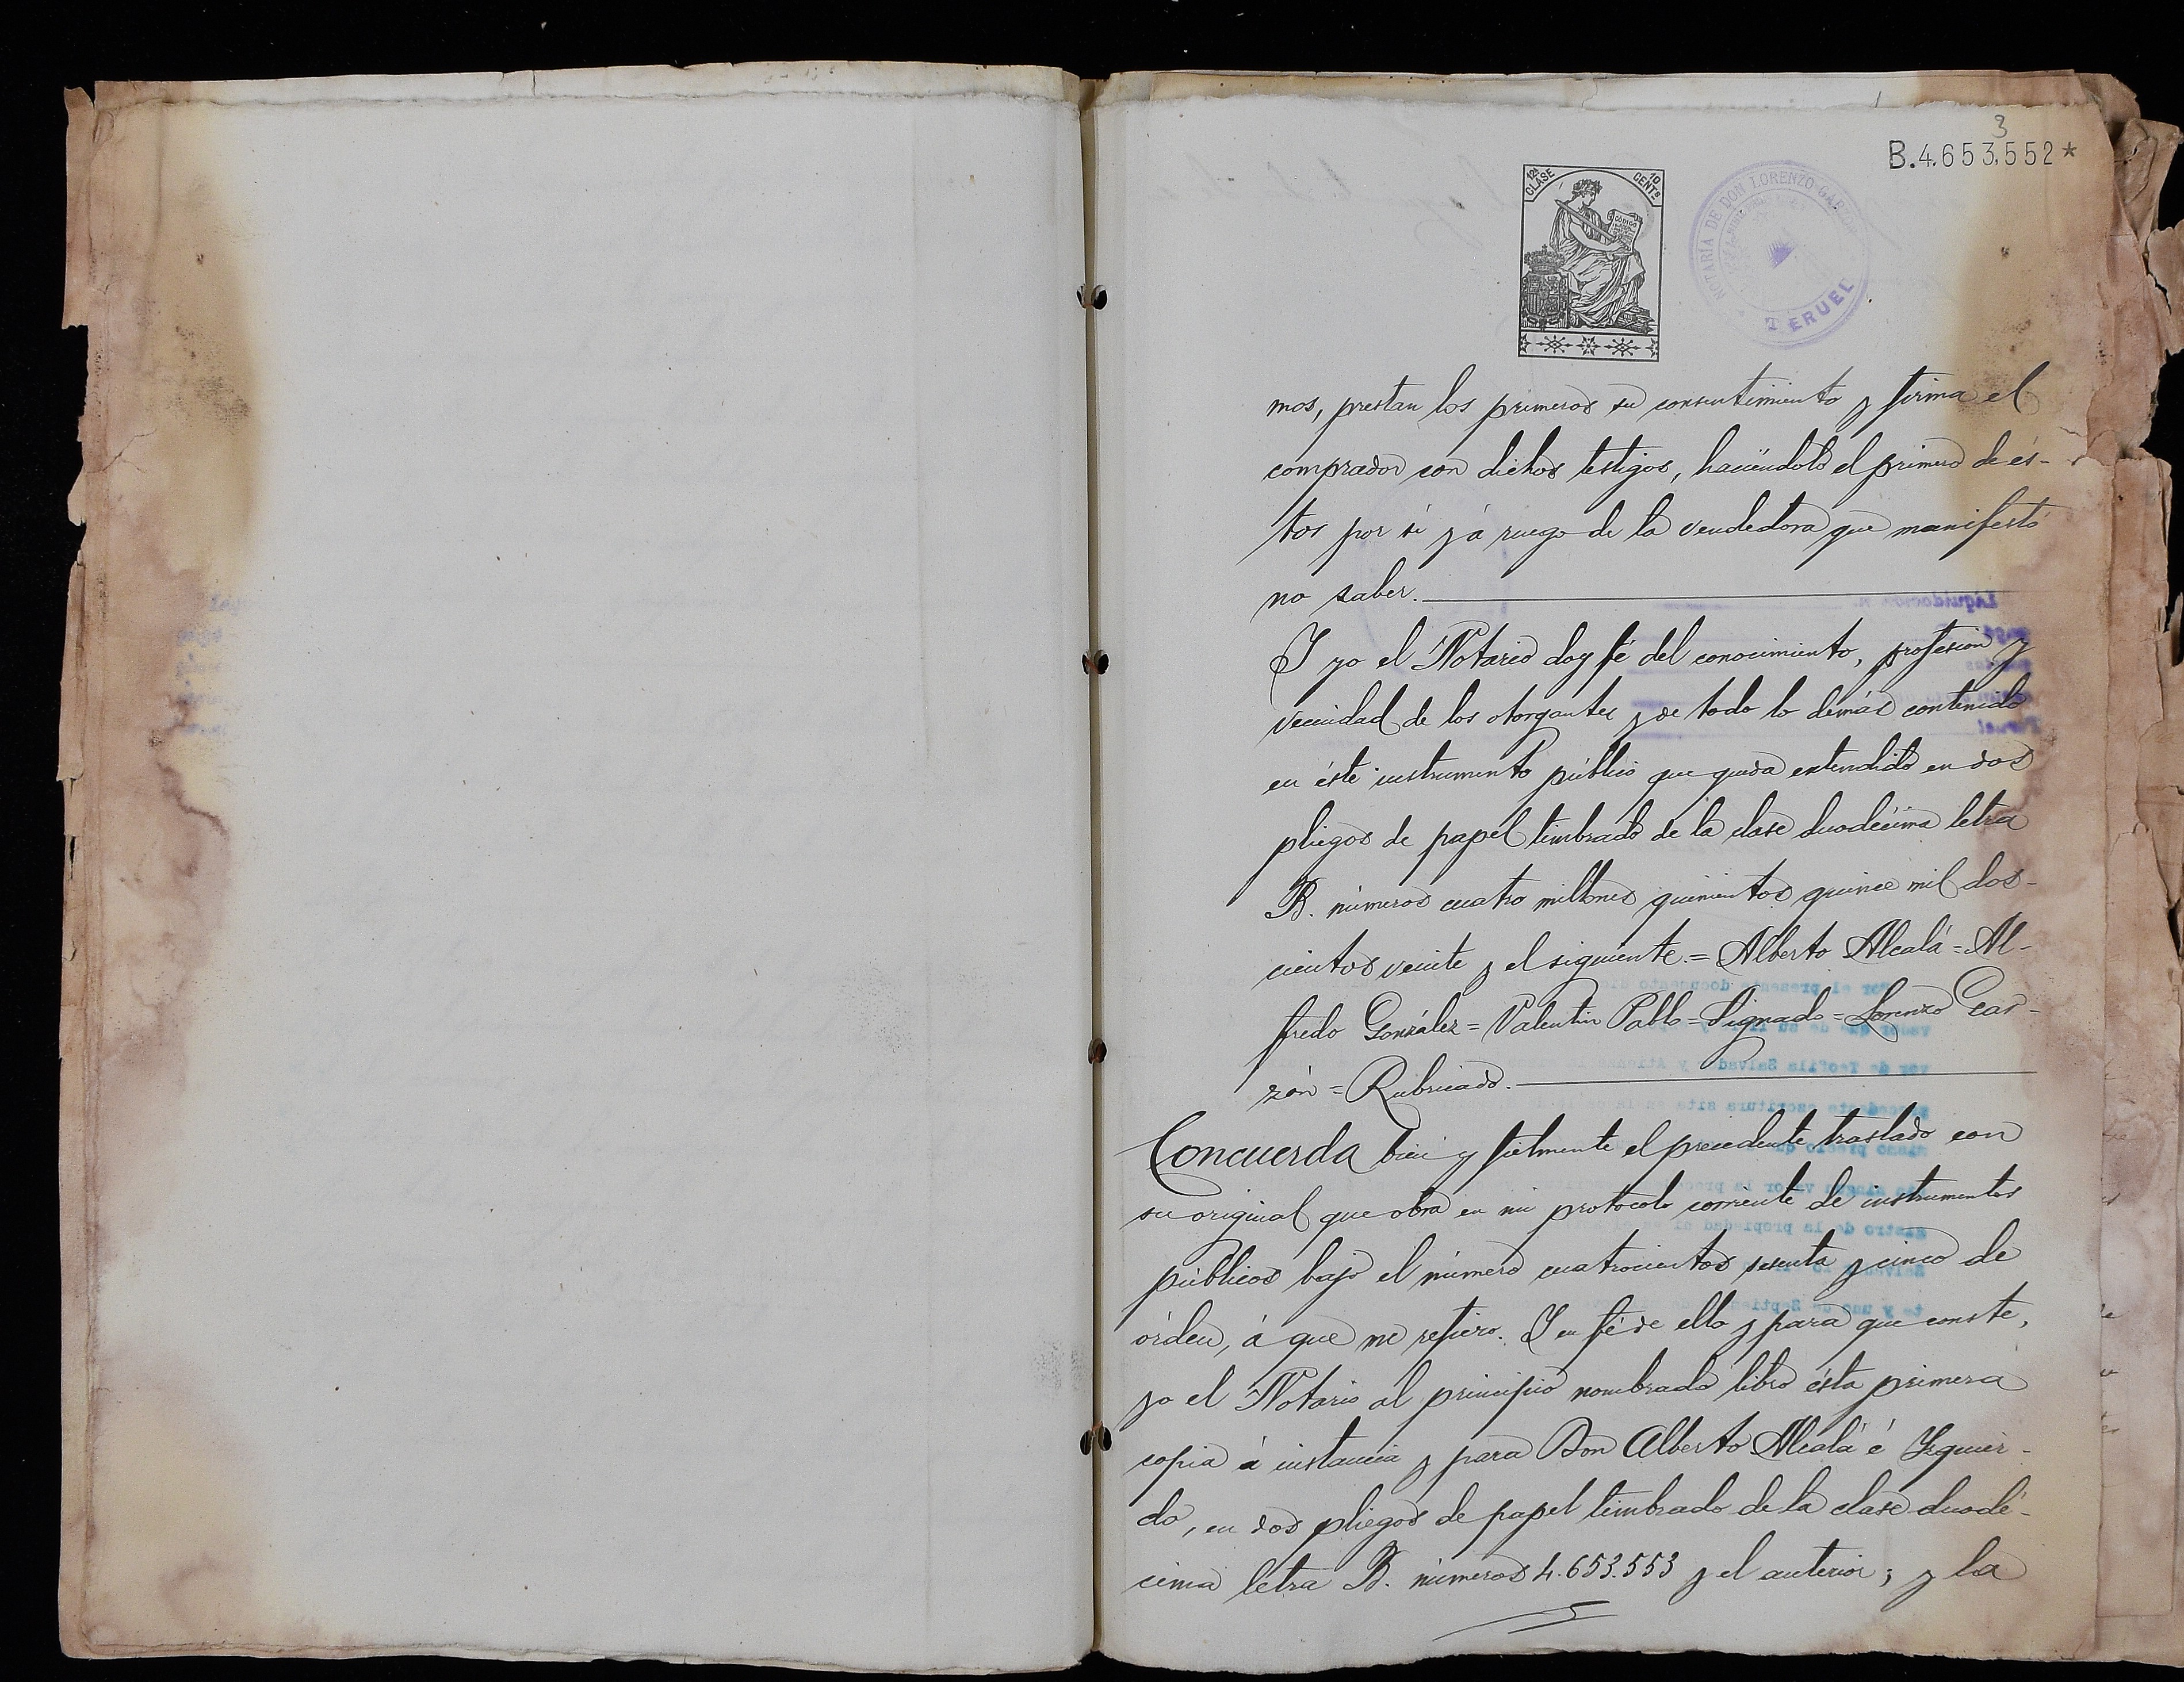 3
B.4.653.552*
12ª CLASE
10 CENTS
CÓDIGO
NOTARÍA DE DON LORENZO GARZÓN
TERUEL
mos, prestan los primeros su consentimiento y firma el
comprador con dichos testigos, haciéndolo el primero de és-
tos por sí y á ruego de la vendedora que manifestó
no saber.
Y yo el Notario doy fé del conocimiento, profesion y
vecindad de los otorgantes y de todo lo demás contenido
en éste instrumento público que queda extendido en dos
pliegos de papel timbrado de la clase duodécima letra
B. números cuatro millones quinientos quince mil dos-
cientos veinte y el siguiente.= Alberto Alcalá = Al-
fredo González = Valentin Pablo = Signado = Lorenzo Gar-
zón = Rubricado.
Concuerda bien y fielmente el precedente traslado con
su original que obra en mi protocolo corriente de instrumentos
públicos bajo el número cuatrocientos sesenta y cinco de
órden, á que me refiero. Y en fé de ello y para que conste,
yo el Notario al principio nombrado libro ésta primera
copia á instancia y para Don Alberto Alcalá é Yzquier-
do, en dos pliegos de papel timbrado de la clase duodé-
cima letra B. números 4.653.553 y el anterior; y la